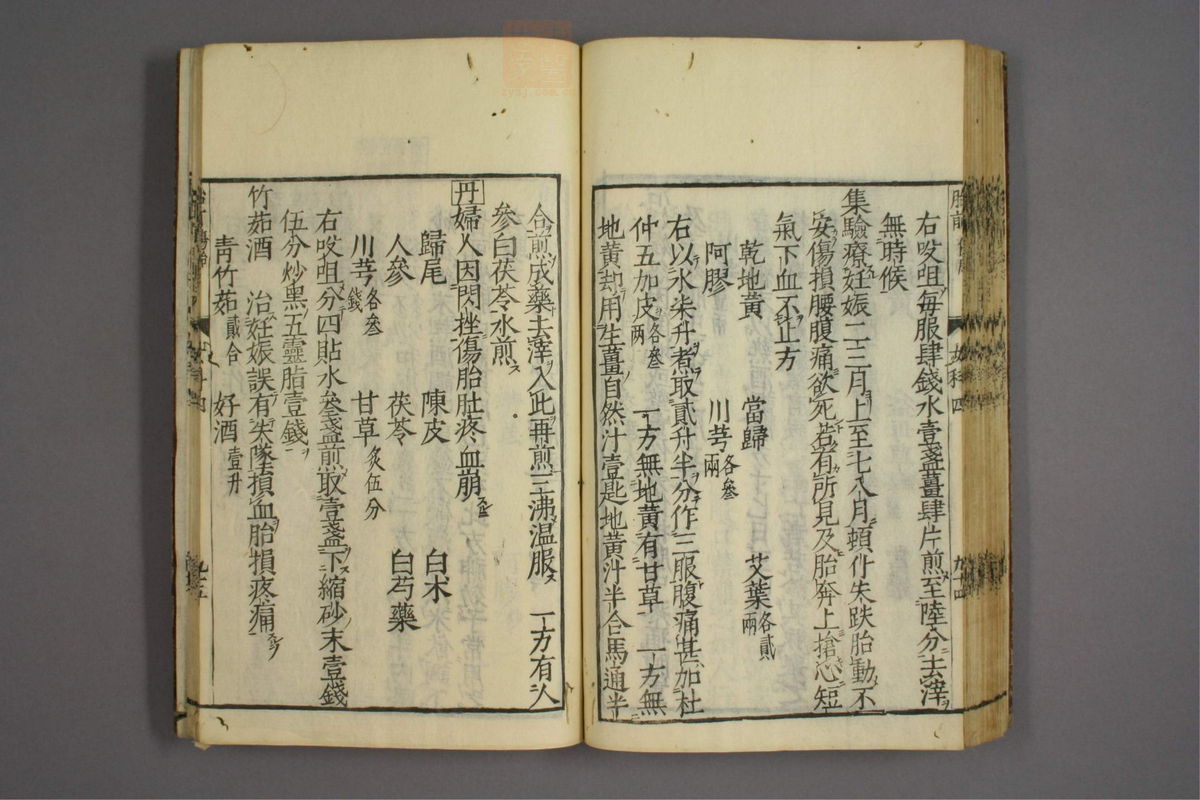 右㕮咀每服肆錢水壹盞薑肆片煎至陸分去滓
無時候
集驗療妊娠二三月上至七八月頓仆失跌胎動不
安傷損腰腹痛欲死若有所見及胎奔上搶心短
氣下血不止方
乾地黃 當歸 艾葉各貳兩
阿膠 川芎各參兩
右以水柒升煮取貳升半分作三服腹痛甚加杜
仲五加皮各參兩 一方無地黃有甘草 一方無
地黃却用生薑自然汁壹匙地黃汁半合馬通半
合煎成藥去滓入此再煎三沸温服 一方有人
參白茯苓水煎
丹婦人因閃挫傷胎肚疼血崩
歸尾 陳皮 白朮
人參 茯苓 白芍藥
川芎各參錢 甘草炙伍分
右㕮咀分四貼水參盞煎取壹盞下縮砂末壹錢
伍分炒黑五靈脂壹錢
竹茹酒 治妊娠誤有失墜損血胎損疼痛
靑竹茹貳合 好酒壹升